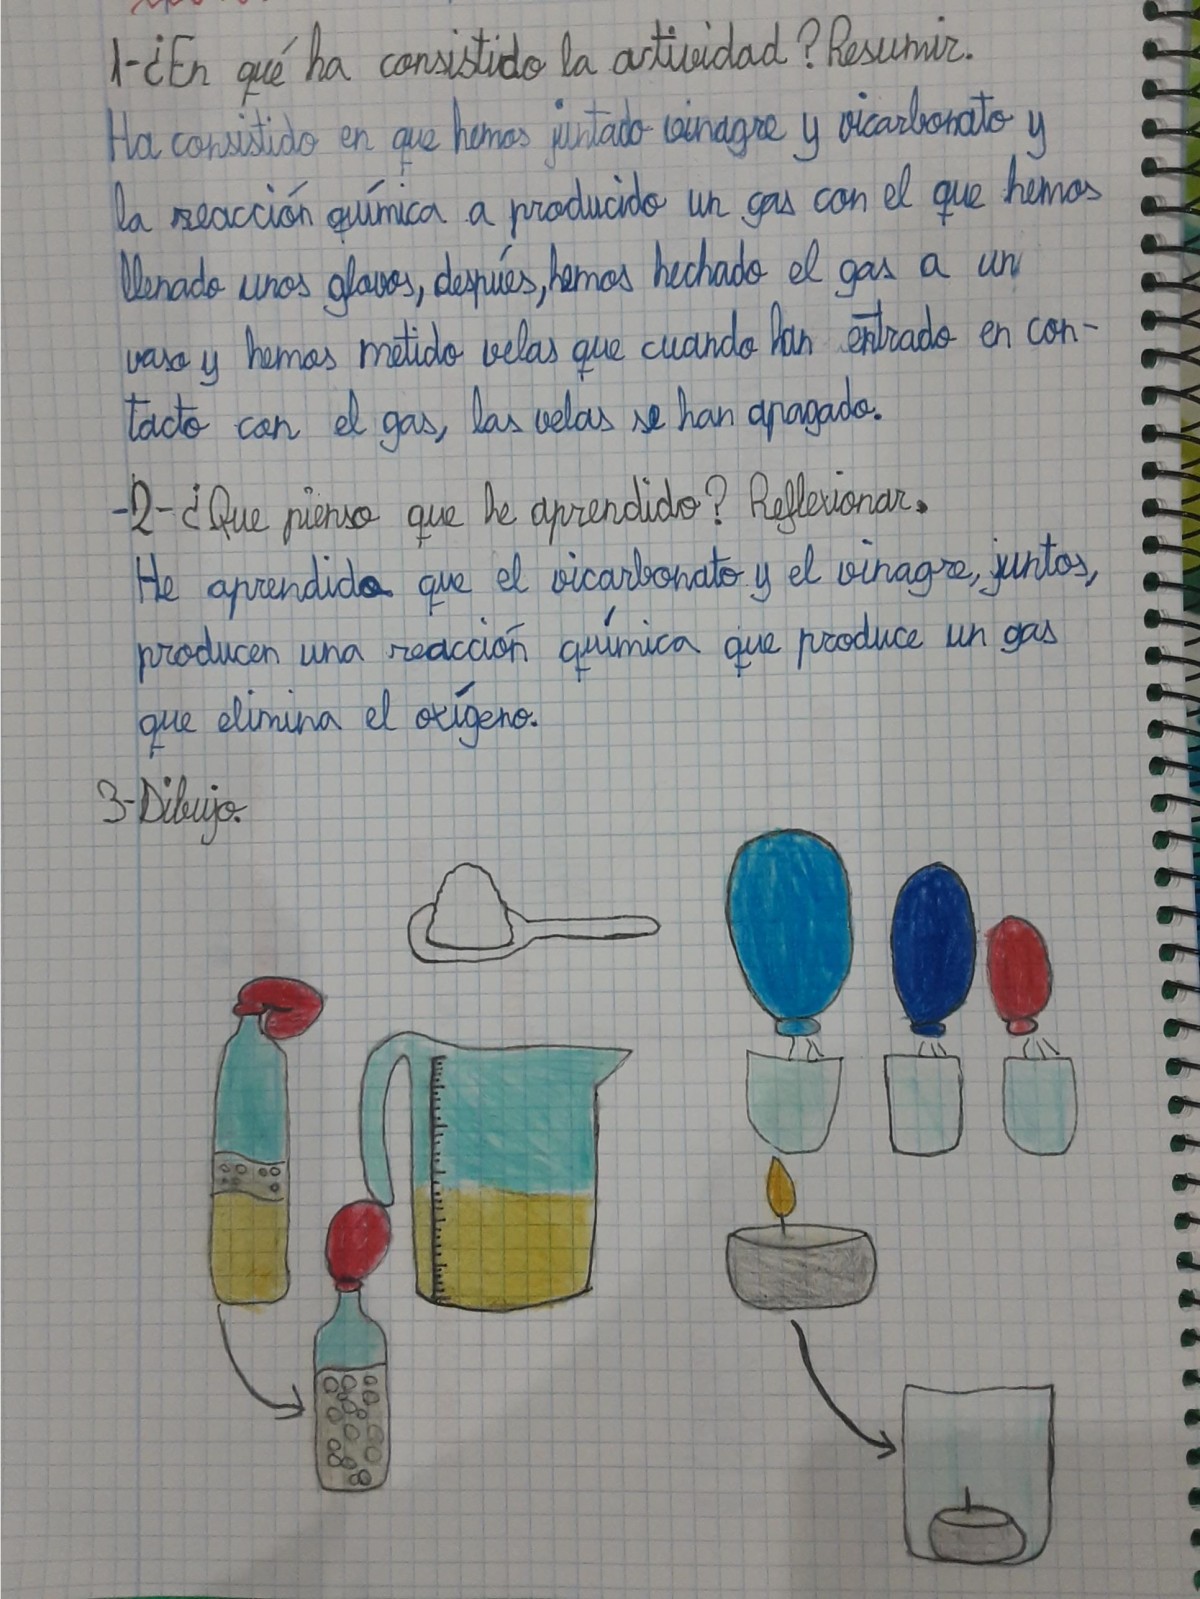 1-¿En qué ha consistido la actividad? Resumir.
Ha consistido en que hemos juntado vinagre y vicarbonato y
la reacción química a producido un gas con el que hemos
llenado unos glovos, después, hemos hechado el gas a un
vaso y hemos metido velas que cuando han entrado en con-
tacto con el gas, las velas se han apagado.
-2-¿Que pienso que he aprendido? Reflexionar.
He aprendido que el vicarbonato y el vinagre, juntos,
producen una reacción química que produce un gas
que elimina el oxígeno.
3-Dibujo.